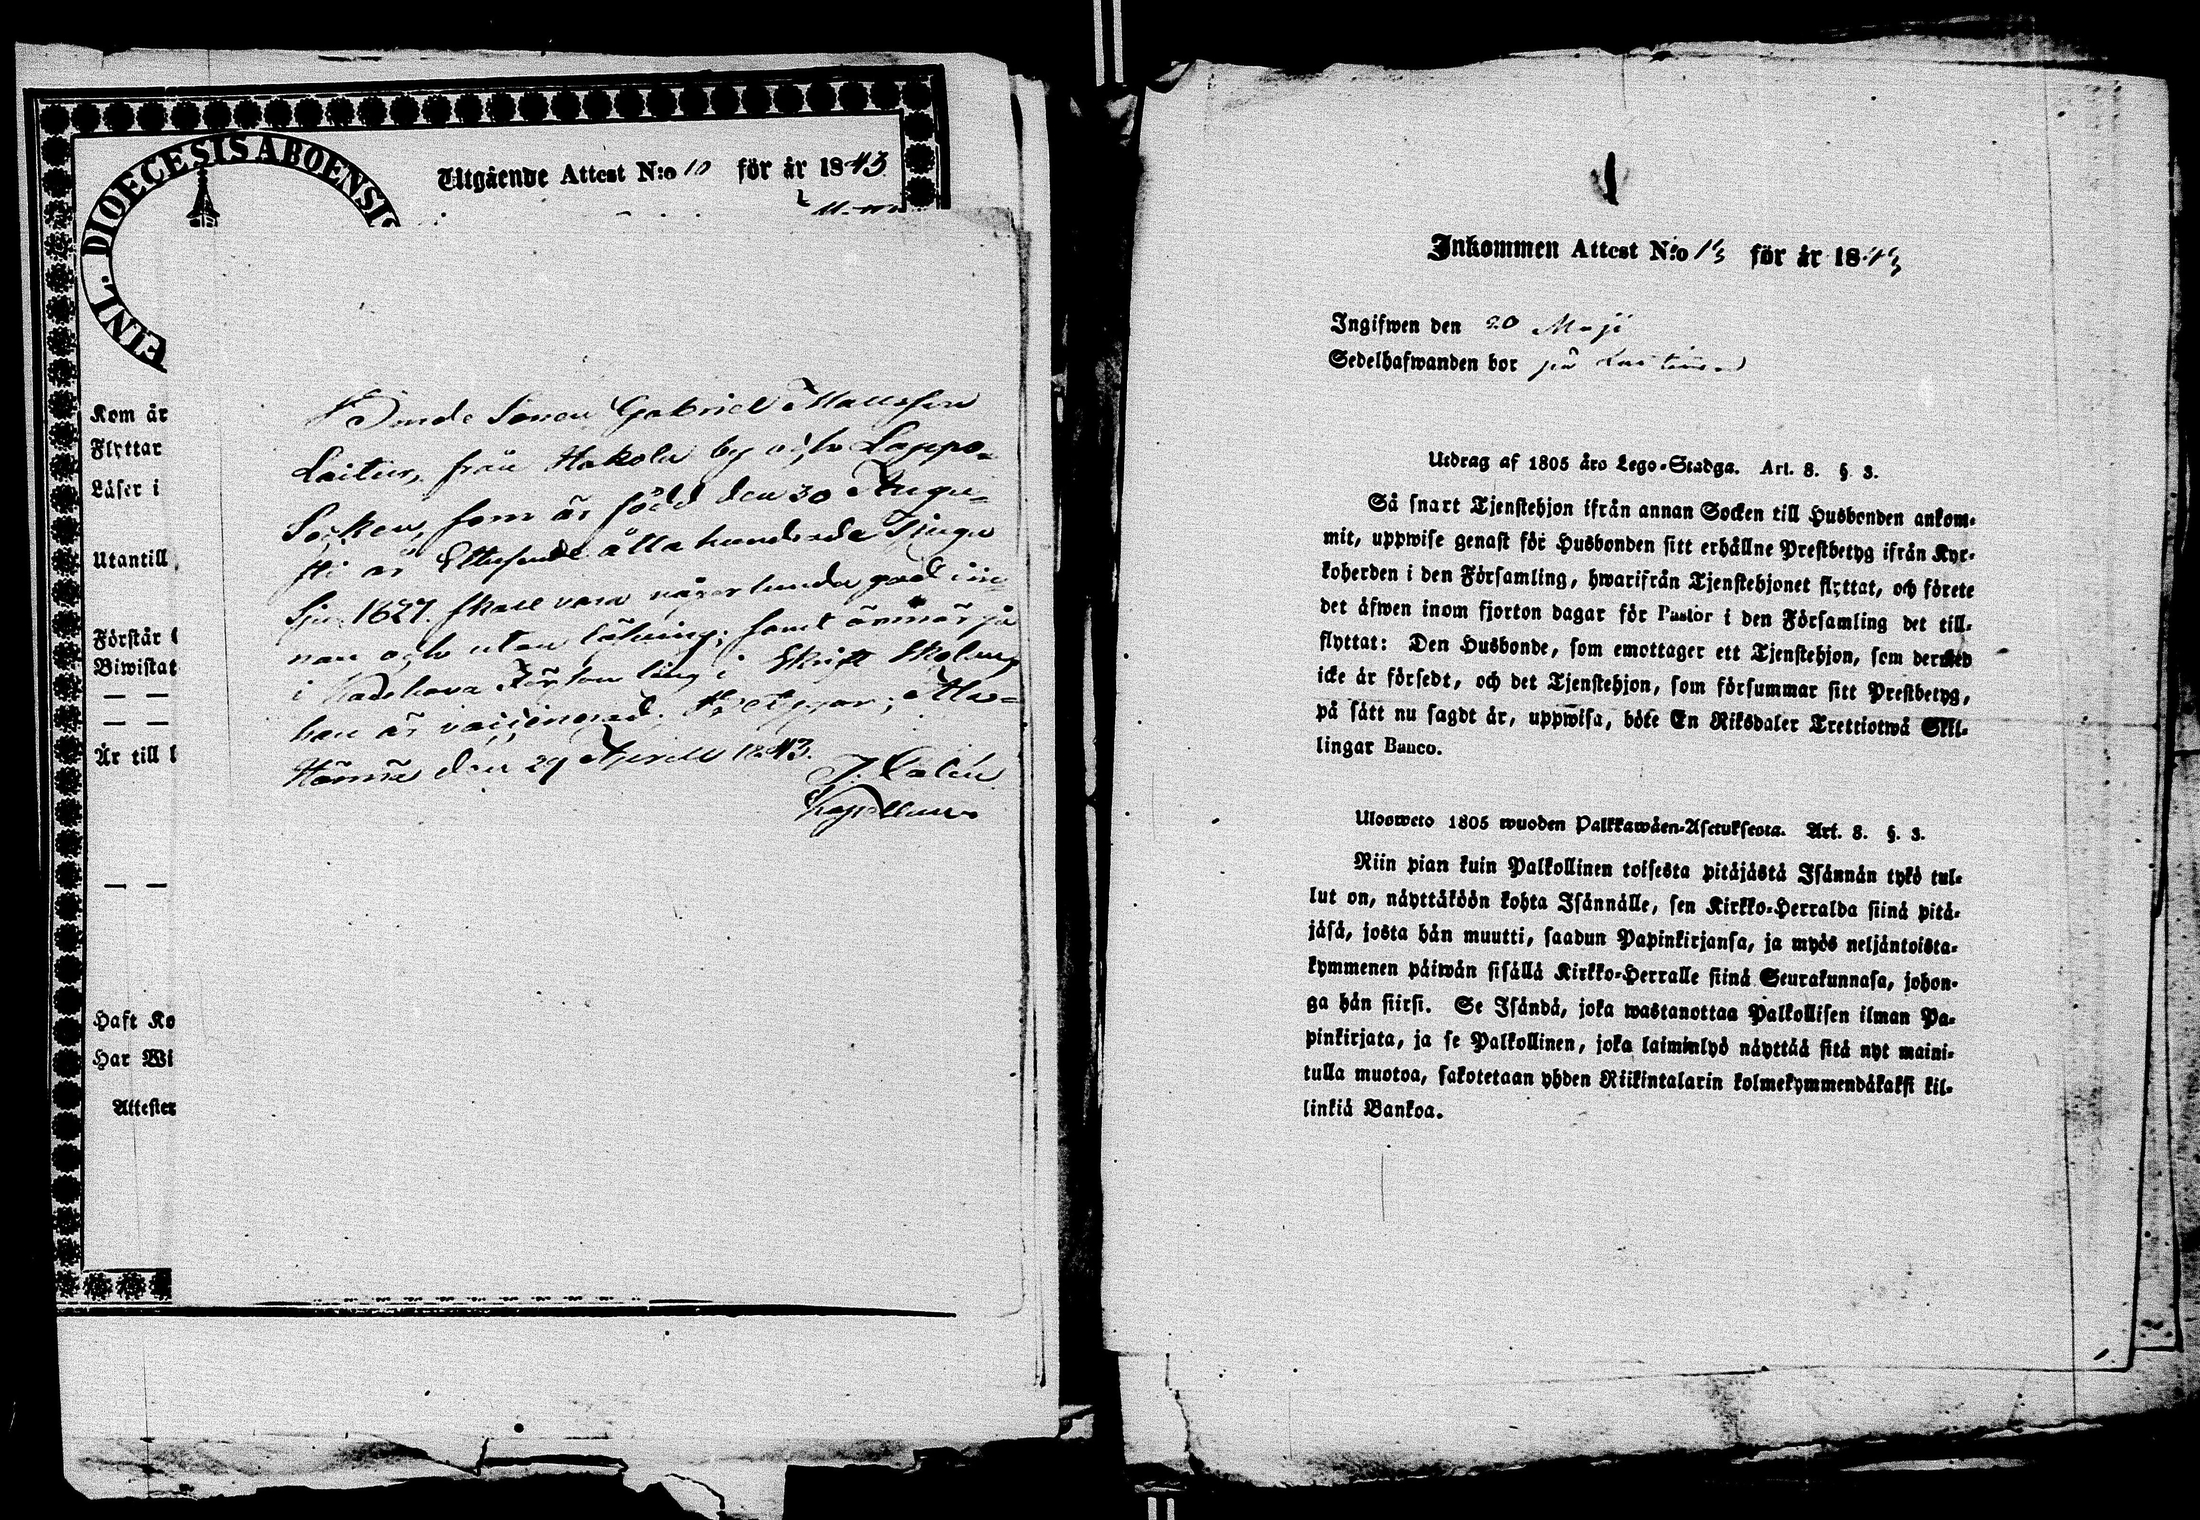 FINL. DIOECESIS ABOENSIS
Utgående Attest N:o 10 för år 1843
Kom år
Flyttar
Läser i
Utantill
Förstår
Biwistat
Är till
Haft Ko
Har Wi
Attester
Bonde Sonen Gabriel Mattsson
Laituri, från Hakola by och Lappo-
Socken, som är född den 30 Augu-
sti år Ettusende åtta hundrade Tjugu
Sju 1827. skall vara någorlunda god in-
nan och utan läsning; samt ännär på
i Kauhava Församling i Skrift Skolan
han är vaccinerad. Attesterar; Ala-
Härmä den 29 Aprill 1843.
Kapellan.
Inkommen Attest N:o 13 för år 1843
Ingifwen den 20 Maji
Sedelhafwanden bor på
Utdrag af 1805 års Lego-Stadga. Art. 8. §. 3.
Så snart Tjenstehjon ifrån annan Socken till Husbonden ankom-
mit, uppwise genast för Husbonden sitt erhållne Prestbetyg ifrån Kyr-
koherden i den Församling, hwarifrån Tjenstehjonet flyttat, och förete
det äfwen inom fjorton dagar för Pastor i den Församling det till-
flyttat: Den Husbonde, som emottager ett Tjenstehjon, som dermed
icke är försedt, och det Tjenstehjon, som försummar sitt Prestbetyg,
på sätt nu sagdt är, uppwisa, böte En Riksdaler Trettiotwå Skil-
lingar Banco.
Ulosweto 1805 wuoden Palkkawäen-Asetuksesta. Art. 8. §. 3.
Niin pian kuin Palkollinen toisesta pitäjästä Isännän tykö tul-
lut on, näyttäköön kohta Isännälle, sen Kirkko-Herralda siinä pitä-
jäsä, josta hän muutti, saadun Papinkirjansa, ja myös neljäntoista-
kymmenen päiwän sisällä Kirkko-Herralle siinä Seurakunnasa, johon-
ga hän siirsi. Se Isändä, joka wastanottaa Palkollisen ilman Pa-
pinkirjata, ja se Palkollinen, joka laiminlyö näyttää sitä nyt maini-
tulla muotoa, sakotetaan yhden Riikintalarin kolmekymmendäkaksi kil-
linkiä Bankoa.